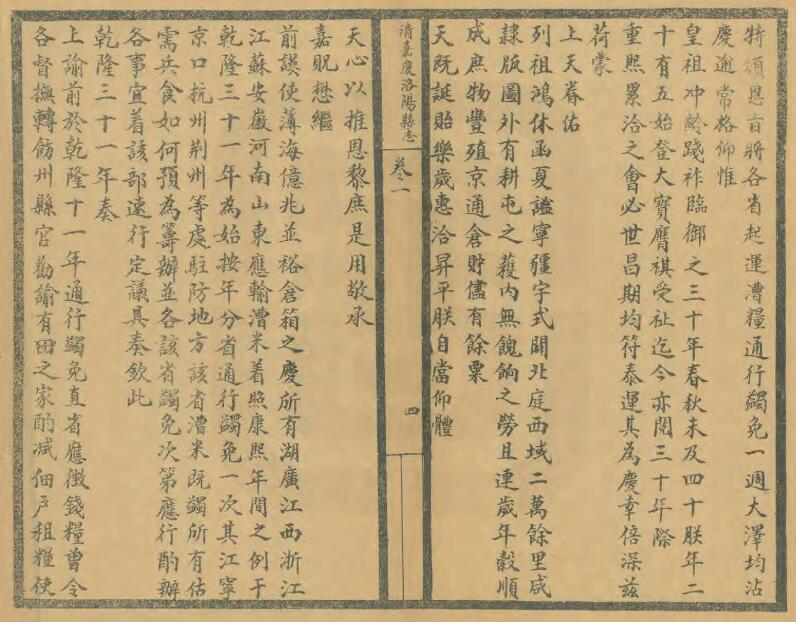 特頒恩旨將各省起運漕糧通行蠲免一週大澤均沾
慶逾常格仰惟
皇祖冲齡踐祚臨御之三十年春秋未及四十朕年二
十有五始登大寶膺祺受祉迄今亦閱三十年際
重熙累洽之會必世昌期均符泰運其為慶幸倍深兹
荷蒙
上天眷佑
列祖鴻休函夏謐寧疆宇式闢北庭西域二萬餘里咸
隷版圖外有耕屯之穫内無餽餉之勞且連歲年穀順
成庶物豐殖京通倉貯儘有餘粟
天既誕貽樂歲惠洽昇平朕自當仰體
清嘉慶洛陽縣志
卷一
四
天心以推恩黎庶是用敬承
嘉貺懋繼
前謨使薄海億兆並裕倉箱之慶所有湖廣江西浙江
江蘇安徽河南山東應輸漕米着照康熙年間之例于
乾隆三十一年為始按年分省通行蠲免一次其江寧
京口杭州荆州等處駐防地方該省漕米既蠲所有估
需兵食如何預為籌辦並各該省蠲免次第應行酌辦
各事宜着該部速行定議具奏欽此
乾隆三十一年奏
上諭前於乾隆十一年通行蠲免直省應徵錢糧曾令
各督撫轉飭州縣官勸諭有田之家酌减佃戸租糧使